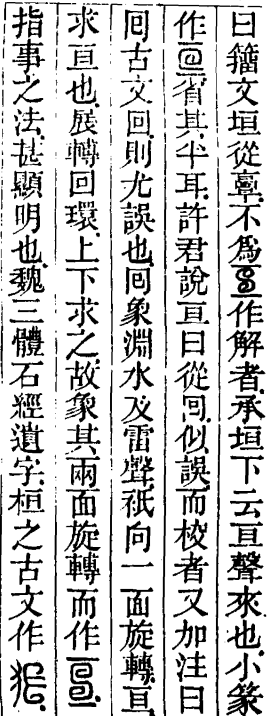 曰籒文垣從𩫖不爲作解者承垣下云亘聲來也小篆
作省其半耳許君說亘曰從囘似誤而校者又加注曰
囘古文回則尤誤也囘象淵水及雷聲祇向一面旋轉亘
求亘也展轉回環上下求之故象其兩面旋轉而作
指事之法甚顯明也魏三體石經遺字桓之古文作